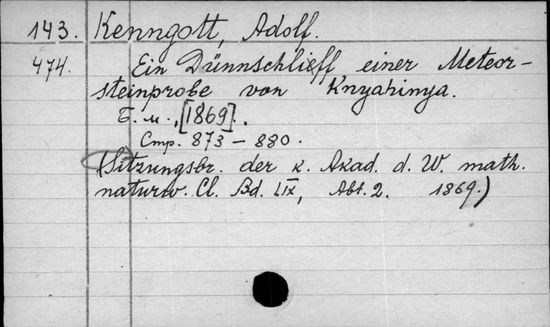 143. Kenngott, Adolf.
474. Ein Dünnschlieff einer Meteor-
steinprobe von Knyahinya.
Б. м., [1869].
Стр. 873 – 880.
(Sitzungsbr. der k. Akad. d. W. math.
naturw. Cl. Bd. LIX, Abt. 2. 1869.)